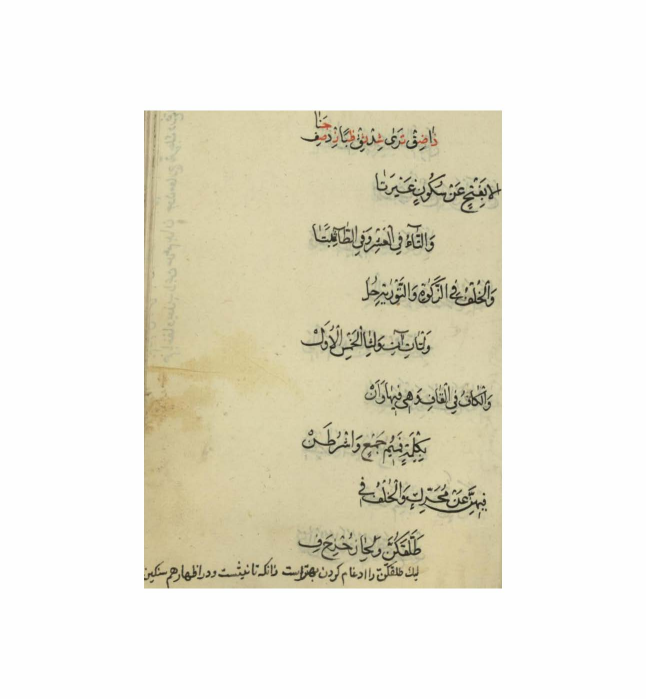 ضِقْ تَرَى شِدْ ثِقْ ظُبًا زِدْ صِفْ جَنَا
الا بِفَتْحٍ عَنْ سُكُونٍ غَيْرَ تَا
وَالتَّاءُ فِي الْعَشْرِ وَفِي الطَّا ثَبَتَا
وَالْخُلْفُ فِي الزَّكٰوةِ وَالتَّوْرٰيةِ حُلْ
وَلْتَأْتِ آتِ وَلِثَا الْخَمْسُ الْأُوَلْ
وَالْكَافُ فِي الْقَافِ وَهِيَ فِيهَا وَاِنْ
بِكِلْمَةٍ فَمِيمُ جَمْعٍ وَاشْرُطَنْ
فِيهِنَّ عَنْ مُحَرَّكٍ وَالْخُلْفُ فِي
طَلَّقَكُنَّ وَلِحَا زُحْزِحَ فِ
ليك طلقكن را ادغام كردن بهتر است زانكه تانيثست ودر اظهار هم سنگين